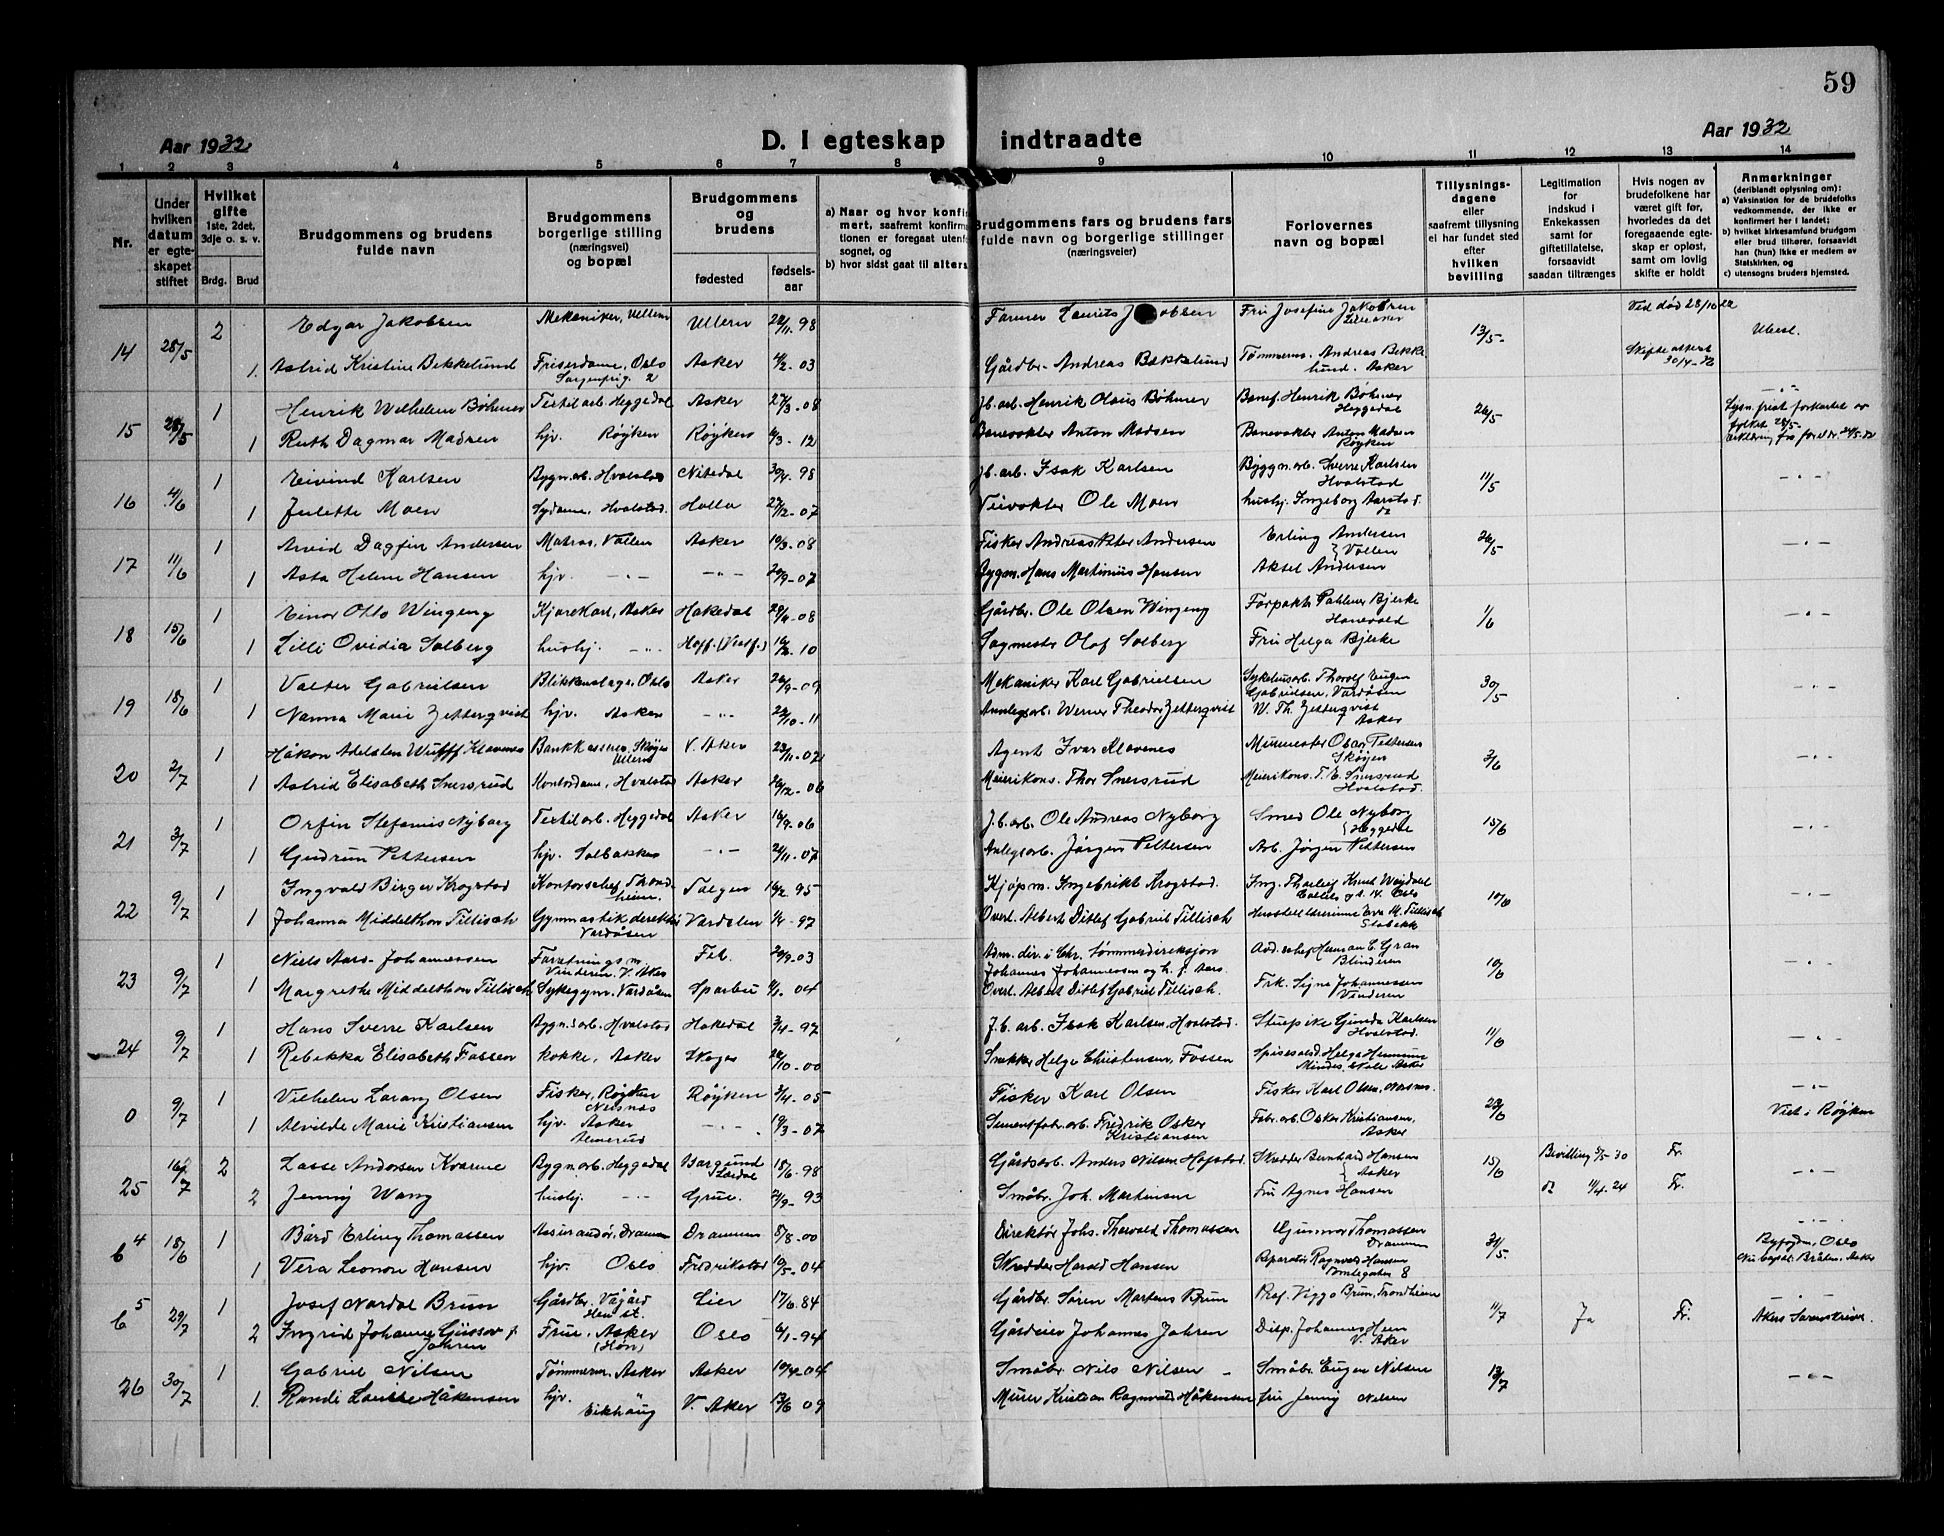 59
Aar 1932
D. I egteskap indtraadte
Aar 1932
1 2 3 4 5 6 7 8 9 10 11 12 13 14
Nr.
Under hvilken datum er egteskapet stiftet
Hvilket gifte
1ste, 2det, 3dje o. s. v.
Brdg. Brud
Brudgommens og brudens fulde navn
Brudgommens borgerlige stilling (næringsvei) og bopæl
Brudgommens og brudens
fødested
fødselsaar
a) Naar og hvor konfi
mert, saafremt konfirma
tionen er foregaat utenf
sognet, og
b) hvor sidst gaat til alters
Brudgommens fars og brudens fars fulde navn og borgerlige stillinger (næringsveier)
Forlovernes navn og bopæl
Tillysningsdagene eller saafremt tillysning ei har fundet sted efter hvilken bevilling
Legitimation for indskud i Enkekassen samt for giftetillatelse, forsaavidt saadan tiltrænges
Hvis nogen av brudefolkene har været gift før, hvorledes da det foregaaende egteskap er opløst, samt om lovlig skifte er holdt
Anmerkninger
(deriblandt oplysning om):
a) Vaksination for de brudefolks vedkommende, der ikke er konfirmert her i landet;
b) hvilket kirkesamfund brudgom eller brud tilhører, forsaavidt han (hun) ikke er medlem av Statskirken, og
c) utensogns bruders hjemsted.
14 28/5 2 Edgar Jakobsen Mekaniker, Ullern Ullern 98 Farmer Laurits Jakobsen Fru Josefine Jakobsen Lilleaker 13/5 Ved død 28/10 22
1 Astrid Kristine Bekkelund Friserdame, Oslo Sorgenfrig. 2 Asker 4/2-03 Gårdbr. Andreas Bekkelund Tømmerm. Andreas Bekkelund. Asker Skifteattest 30/4-32
15 28/5 1 Henrik Wilhelm Bøhmer Textilarb. Heggedal Asker 27/3-08 Jb. arb. Henrik Olaus Bøhmer Henrik Bøhmer Heggedal 26/5 Lysn. frist forkortet av
1 Ruth Dagmar Madsen hjv. Røyken Røyken 12 Banevokter Anton Madsen Banevokter Anton Madsen Røyken
16 4/6 1 Eivind Karlsen Bygn.arb. Hvalstad Nitedal 98 Jb. arb. Isak Karlsen Bygn.arb. Sverre Karlsen Hvalstad 11/5 -„-
1 Juliette Moen Sydame, Hvalstad. Holla 07 Veivokter Ole Moen hushj. Ingeborg Aarstad do
17 11/6 1 Arvid Dagfin Andersen Matros, Vollen Asker 10/3-08 Fisker Andreas Peter Andersen Erling Andersen Vollen 26/5 -„-
1 Asta Helene Hansen hjv. -„- -„- 07 Bygm. Hans Martinius Hansen Aksel Andersen
18 15/6 1 Einar Otto Wingeng Kjørekarl, Asker Hakedal 08 Gårdbr. Ole Olsen Wingeng Forpakt. Bjerke Hanevold 1/6 -„-
1 Lilli Ovidia Solberg hushj. -„- Hoff. (Vestf.) 10 Sagmester Olaf Solberg Fru Helga Bjerke
19 18/6 1 Valter Gabrielsen Blikkenslager, Oslo Asker 26/9-09 Mekaniker Karl Gabrielsen Sykehusarb. Thorolf Eugen Gabrielsen, Vardåsen 30/5 -„-
1 Nanna Marie Zetterqvist hjv. Asker -„- 10-11 Anlegsarb. Werner Theodor Zetterqvist W. Th. Zetterqvist Asker
20 2/7 1 Håkon Adelsten Wulff Klavenes Bankkasserer, Skøyen Ullern V. Aker 23/11-02 Agent Ivar Klavenes Murmester Oscar Pettersen Skøyen 3/6
1 Astrid Elisabeth Snersrud Kontordame, Hvalstad Asker 06 Meierikons. Thor Snersrud Meierikons. T. E. Snersrud Hvalstad.
21 3/7 1 Orfin Stefanus Nyborg Textilarb. Heggedal Asker 16/9-06 J.b. arb. Ole Andreas Nyborg Smed Ole Nyborg Heggedal 15/6 -„-
1 Gudrun Pettersen hjv. Solbakken -„- 07 Anlegsarb. Jørgen Pettersen Arb. Jørgen Pettersen
22 9/7 1 Ingvald Birger Krogstad Kontorchef, Trondheim. Tolgen 16/2 95 Kjøpm. Ingebrikt Krogstad. Ing. Thorleif Knut Oslo 10/6 -„-
1 Johanna Middelthon Tillisch Gymnastikdirektør Vardåsen Verdalen 1/4-97 Overl. Albert Ditlef Gabriel Tillisch Eva M. Tillisch Stabekk
23 9/7 1 Niels Aars-Johannessen Forretningsm. Vinderen V. Aker Fet. 03 Adm. dir. i Chr. Tømmerdireksjon Johannes Johannessen og h. f. Aars Avd.schef Herman C. Gran Blinderen 10/6 -„-
1 Margrethe Middelthon Tillisch Sykegym. Vardåsen Sparbu 04 Overl. Albert Ditlef Gabriel Tillisch. Frk. Signe Johannessen Vinderen
24 9/7 1 Hans Sverre Karlsen Bygn.arb. Hvalstad Hakedal 3/4-97 J.b. arb. Isak Karlsen, Hvalstad. Stuepike Gunda Karlsen Hvalstad. 11/6 -„-
1 Rebekka Elisabeth Fossen kokke, Asker Skoger 10-00 Snekker Helge Christensen, Fossen Helga Asker
0 9/7 1 Vilhelm Lorang Olsen Fisker, Røyken Nersnes Røyken 3/4-05 Fisker Karl Olsen Fisker Karl Olsen, Nersnes. -„-
1 Alvilde Marie Kristiansen hjv. Asker -„- 07 Sementfabr.arb. Fredrik Oskar Kristiansen Fabr.arb. Oskar Kristiansen, Asker Viet i Røyken
25 16/7 2 Lasse Andersen Kvarme Bygn.arb. Heggedal Borgund Lærdal 15/6-98 Gårdsarb. Anders Nilsen Hofstad. Skredder Bernhard Hansen Asker 15/6 Bevilling 30 Fr. -„-
2 Jenny Wang hushj. -„- Grue. 93 Småbr. Joh. Martinsen Fru Agnes Hansen do 11/4-24 Fr.
b4 18/6 1 Bård Erling Thomassen Assurandør, Drammen Drammen 5/8-00 Direktør Johs. Thorvald Thomassen Gunnvor Thomassen Drammen 31/5 -„- Byfogden, Oslo
1 Vera Leonor Hansen hjv. Oslo Fredrikstad 10/5-04 Skredder Harald Hansen Reparatør Ragnvald Hansen 8 Nu bopæl: Bråten. Asker
b5 29/7 1 Josef Nordal Brun Gårdbr. Vågård Hønst. Lier 17/6 84 Gårdbr. Søren Martens Brun Prof. Viggo Brun, Trondheim 11/7 Ja Fr. Akers Sorenskriver.
2 Ingrid Johanne f. Jahren Frue, Asker (Høn) Oslo 6/1-94 Gårdeier Johannes Jahren Disp. Johannes V. Aker
26 30/7 1 Gabriel Nilsen Tømmerm. Asker Asker 10/4-04 Småbr. Nils Nilsen Småbr. Eugen Nilsen 13/7 -„-
1 Randi Louise Håkensen hjv. Eikhaug V. Aker 13/6 09 Murer Kristian Ragnvald Håkensen fru Jenny Nilsen